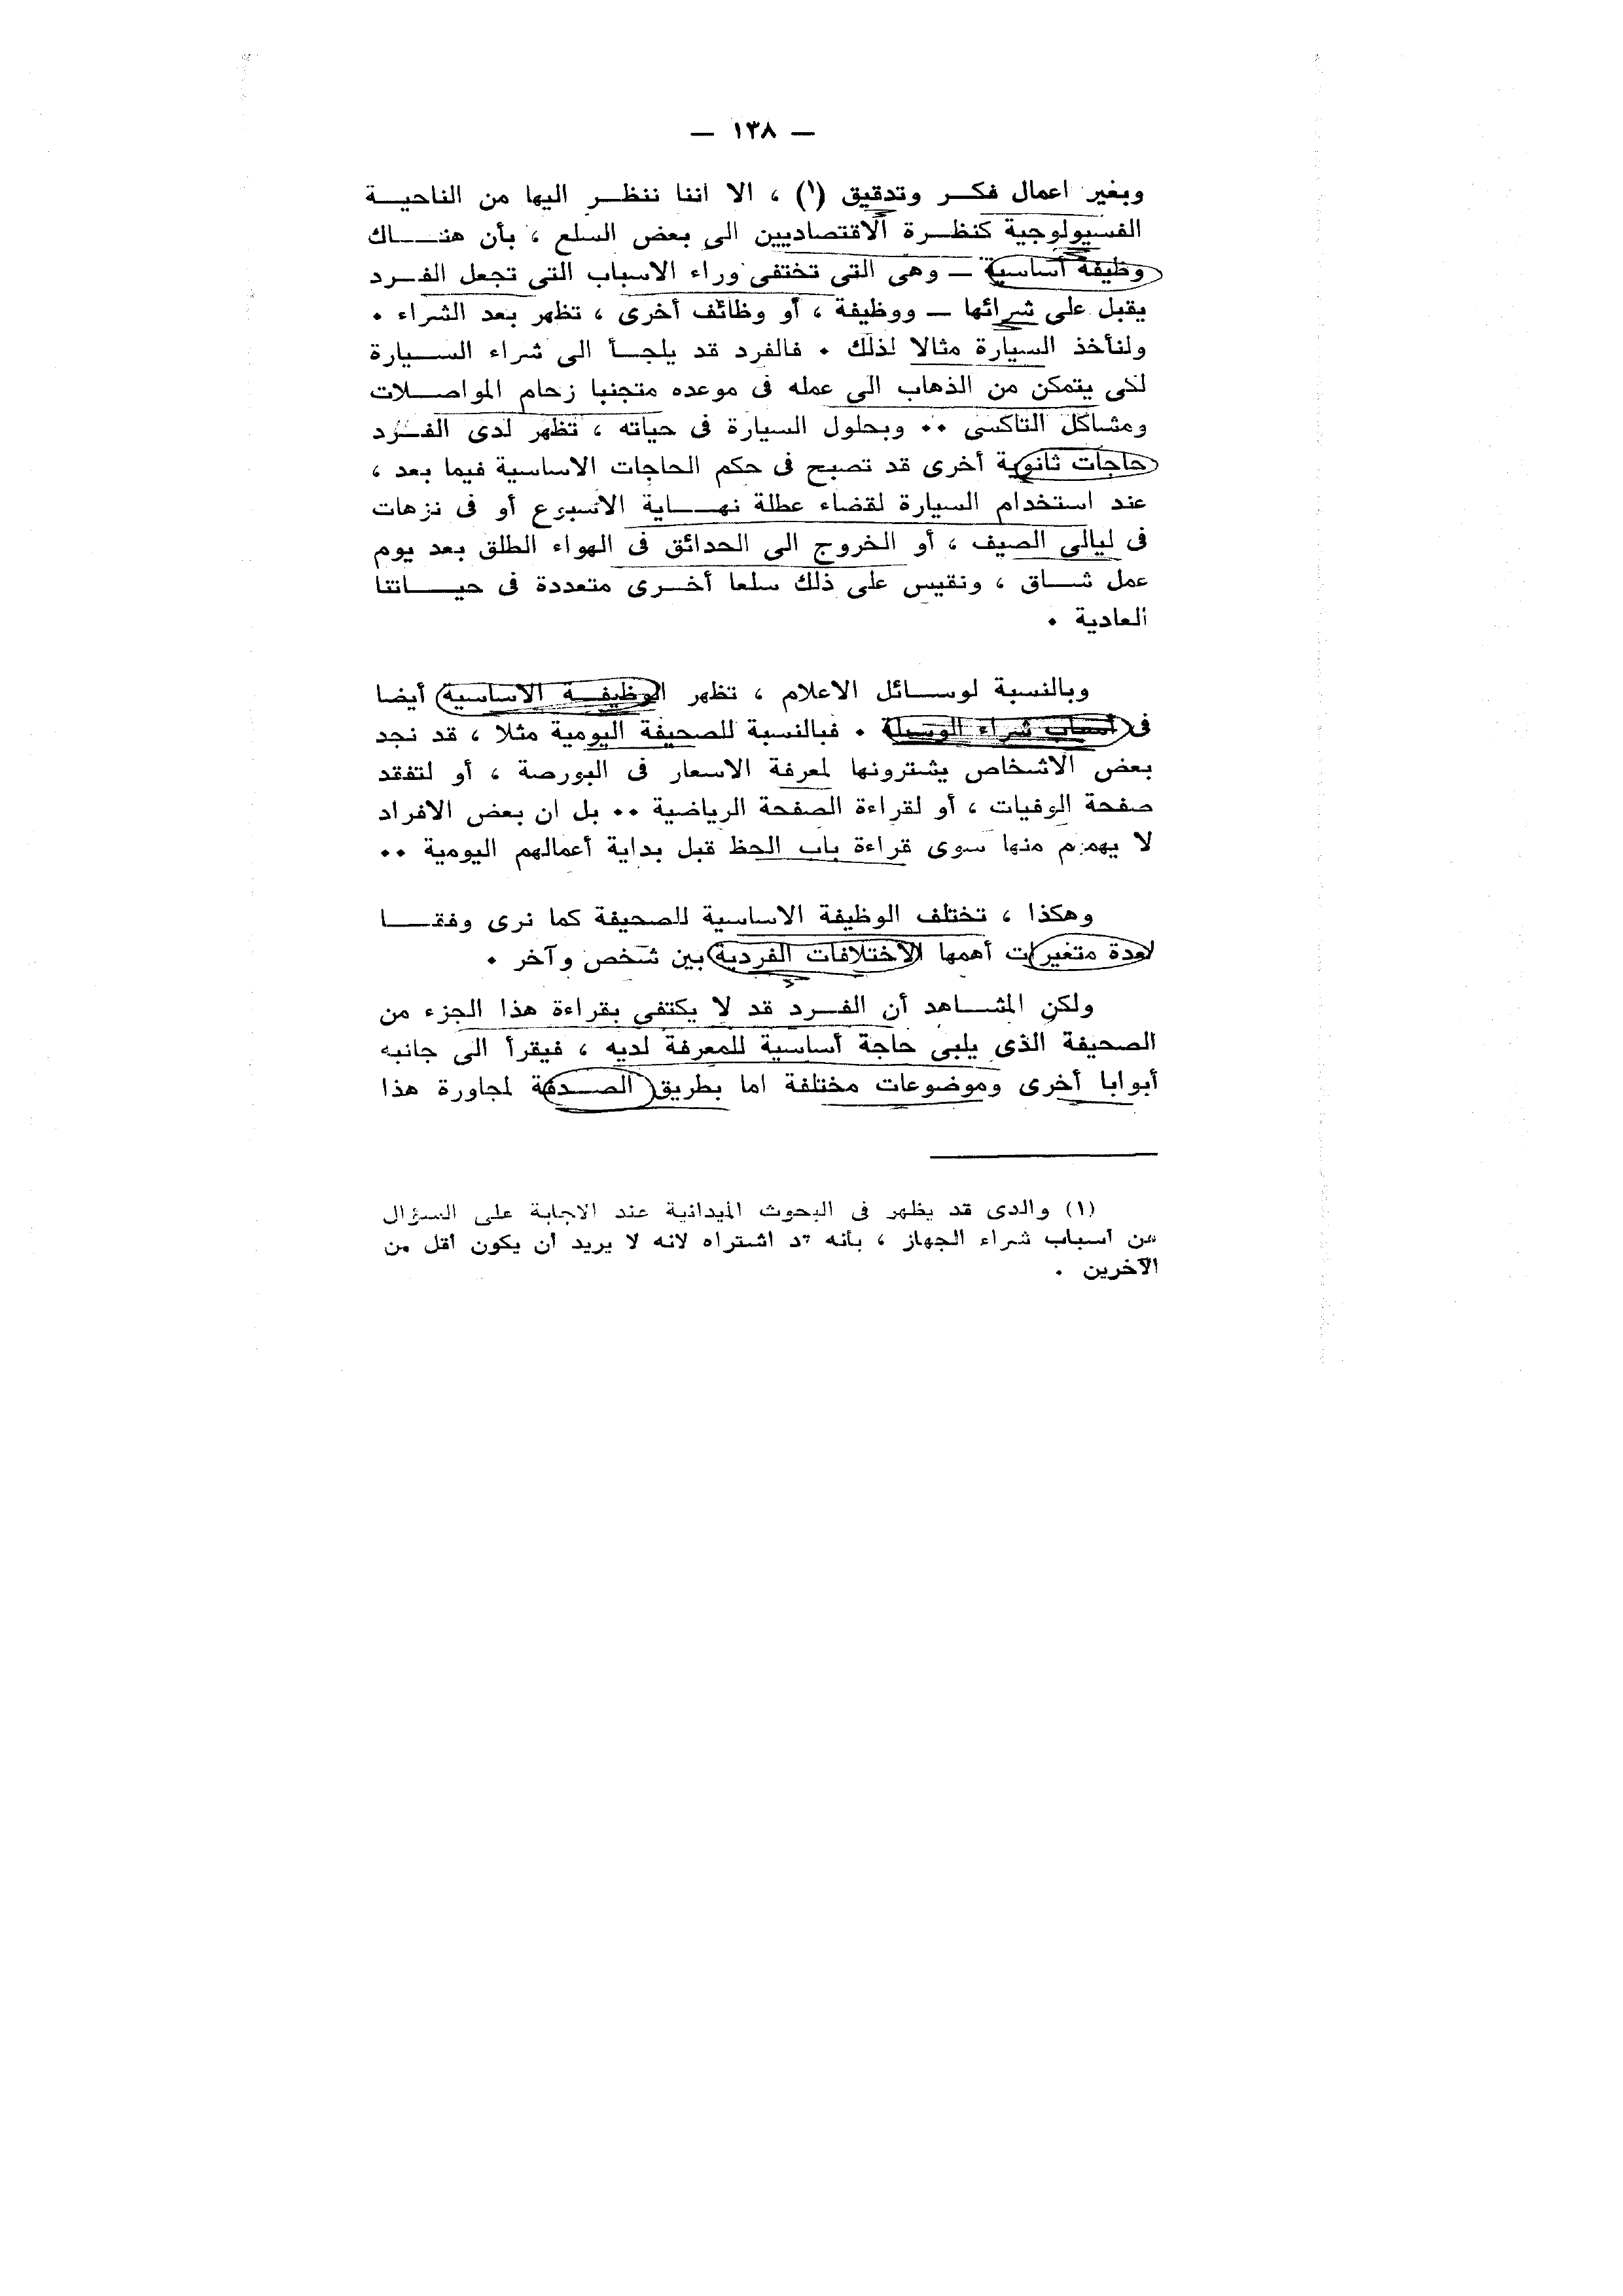 — ١٣٨ —
وبغير اعمال فكر وتدقيق (١) ، الا اننا ننظر اليها من الناحية
الفسيولوجية كنظرة الاقتصاديين الى بعض السلع ، بأن هناك
وظيفة أساسية — وهى التى تختفى وراء الاسباب التى تجعل الفرد
يقبل على شرائها — ووظيفة ، أو وظائف أخرى ، تظهر بعد الشراء .
ولنأخذ السيارة مثالا لذلك . فالفرد قد يلجأ الى شراء السيارة
لكى يتمكن من الذهاب الى عمله فى موعده متجنبا زحام المواصلات
ومشاكل التاكسى .. وبحلول السيارة فى حياته ، تظهر لدى الفرد
حاجات ثانوية أخرى قد تصبح فى حكم الحاجات الاساسية فيما بعد ،
عند استخدام السيارة لقضاء عطلة نهاية الاسبوع أو فى نزهات
فى ليالى الصيف ، أو الخروج الى الحدائق فى الهواء الطلق بعد يوم
عمل شاق ، ونقيس على ذلك سلعا أخرى متعددة فى حياتنا
العادية .
وبالنسبة لوسائل الاعلام ، تظهر الوظيفة الاساسية أيضا
فى أسباب شراء الوسيلة . فبالنسبة للصحيفة اليومية مثلا ، قد نجد
بعض الاشخاص يشترونها لمعرفة الاسعار فى البورصة ، أو لتفقد
صفحة الوفيات ، أو لقراءة الصفحة الرياضية .. بل ان بعض الافراد
لا يهمهم منها سوى قراءة باب الحظ قبل بداية أعمالهم اليومية ..
وهكذا ، تختلف الوظيفة الاساسية للصحيفة كما نرى وفقا
لعدة متغيرات أهمها الاختلافات الفردية بين شخص وآخر .
ولكن المشاهد أن الفرد قد لا يكتفى بقراءة هذا الجزء من
الصحيفة الذى يلبى حاجة أساسية للمعرفة لديه ، فيقرأ الى جانبه
أبوابا أخرى وموضوعات مختلفة اما بطريق الصدفة لمجاورة هذا
(١) والذى قد يظهر فى البحوث الميدانية عند الاجابة على السؤال
عن أسباب شراء الجهاز ، بأنه قد اشتراه لانه لا يريد أن يكون أقل من
الآخرين .